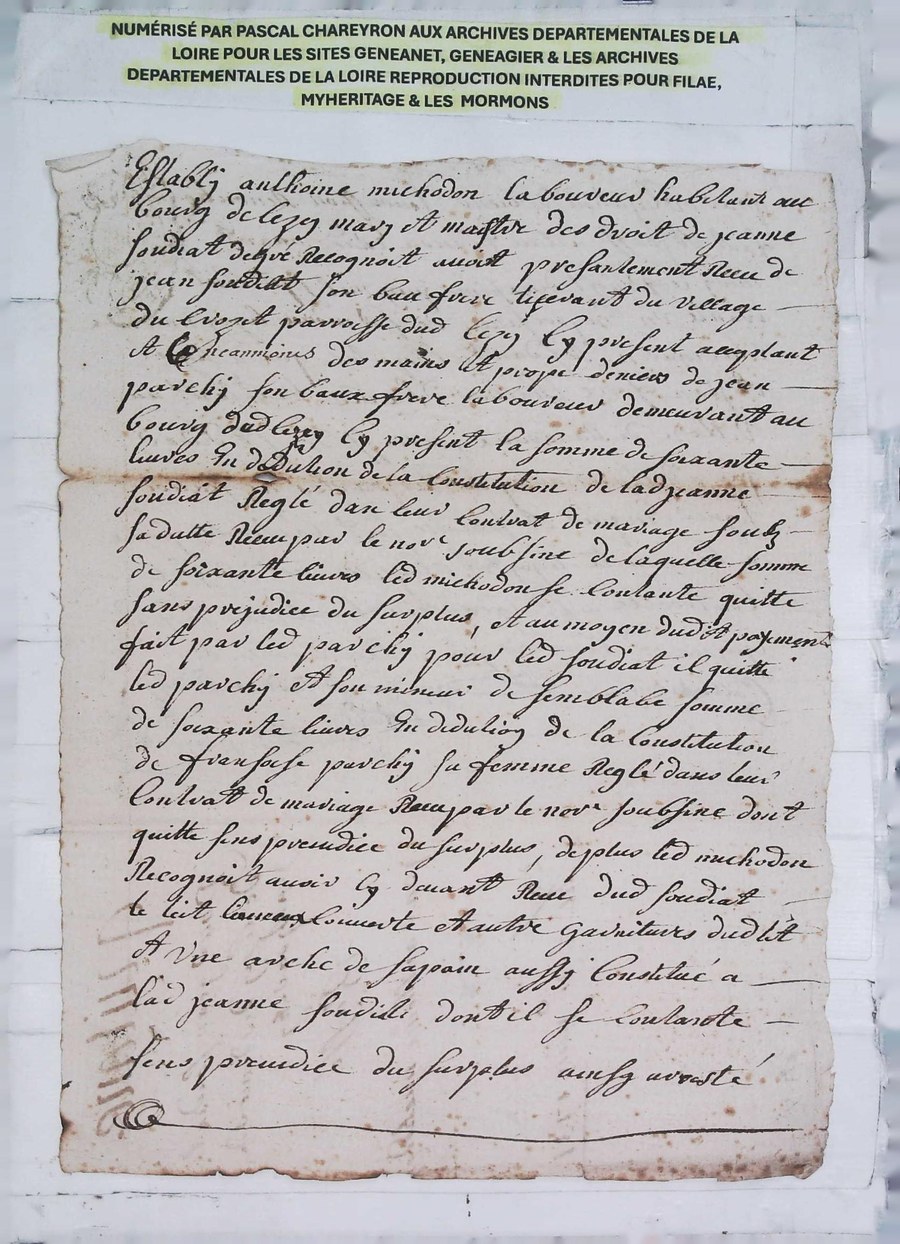 NUMÉRISÉ PAR PASCAL CHAREYRON AUX ARCHIVES DEPARTEMENTALES DE LA
LOIRE POUR LES SITES GENEANET, GENEAGIER & LES ARCHIVES
DEPARTEMENTALES DE LA LOIRE REPRODUCTION INTERDITES POUR FILAE,
MYHERITAGE & LES MORMONS
Establij anthoine michodon laboureur habitant au
bourg de lezey mary et maistre des droit de jeanne
soudiat de gré Recognoit avoit presantement Receu de
jean soudiat son bau frere tisserant du village
du crozet parroisse dud lezey Cy present acceptant
et des mains et propr deniers de jean
parchij son baux frere laboureur demeurant au
bourg dud lezey Cy present la somme de soixante
liures En deduction de la Constitution de lad jeanne
soudiat Reglé dan leur Contrat de mariage soubz
sa datte Receu par le nore soubsine de laquelle somme
de soixante liures led michodon se Contante quitte
sans prejudice du surplus, et au moyen dudit payement
fait par led parchij pour led soudiat il quitte
led parchij et son mineur de semblabe somme
de soixante liures En deduction de la Constitution
de fransoise parchij sa femme Reglé dans leur
Contrat de mariage Receu par le nore soubsine dont
quitte sens preiudice du surplus, de plus led michodon
Recognoit auoir Cy deuant Receu dud soudiat
le lict Couverte et autre garnitures dud lit
et Vne arche de sapain aussy Constitué a
lad jeanne soudiat dont il se Contante
sens preiudice du surplus ainsy aresté